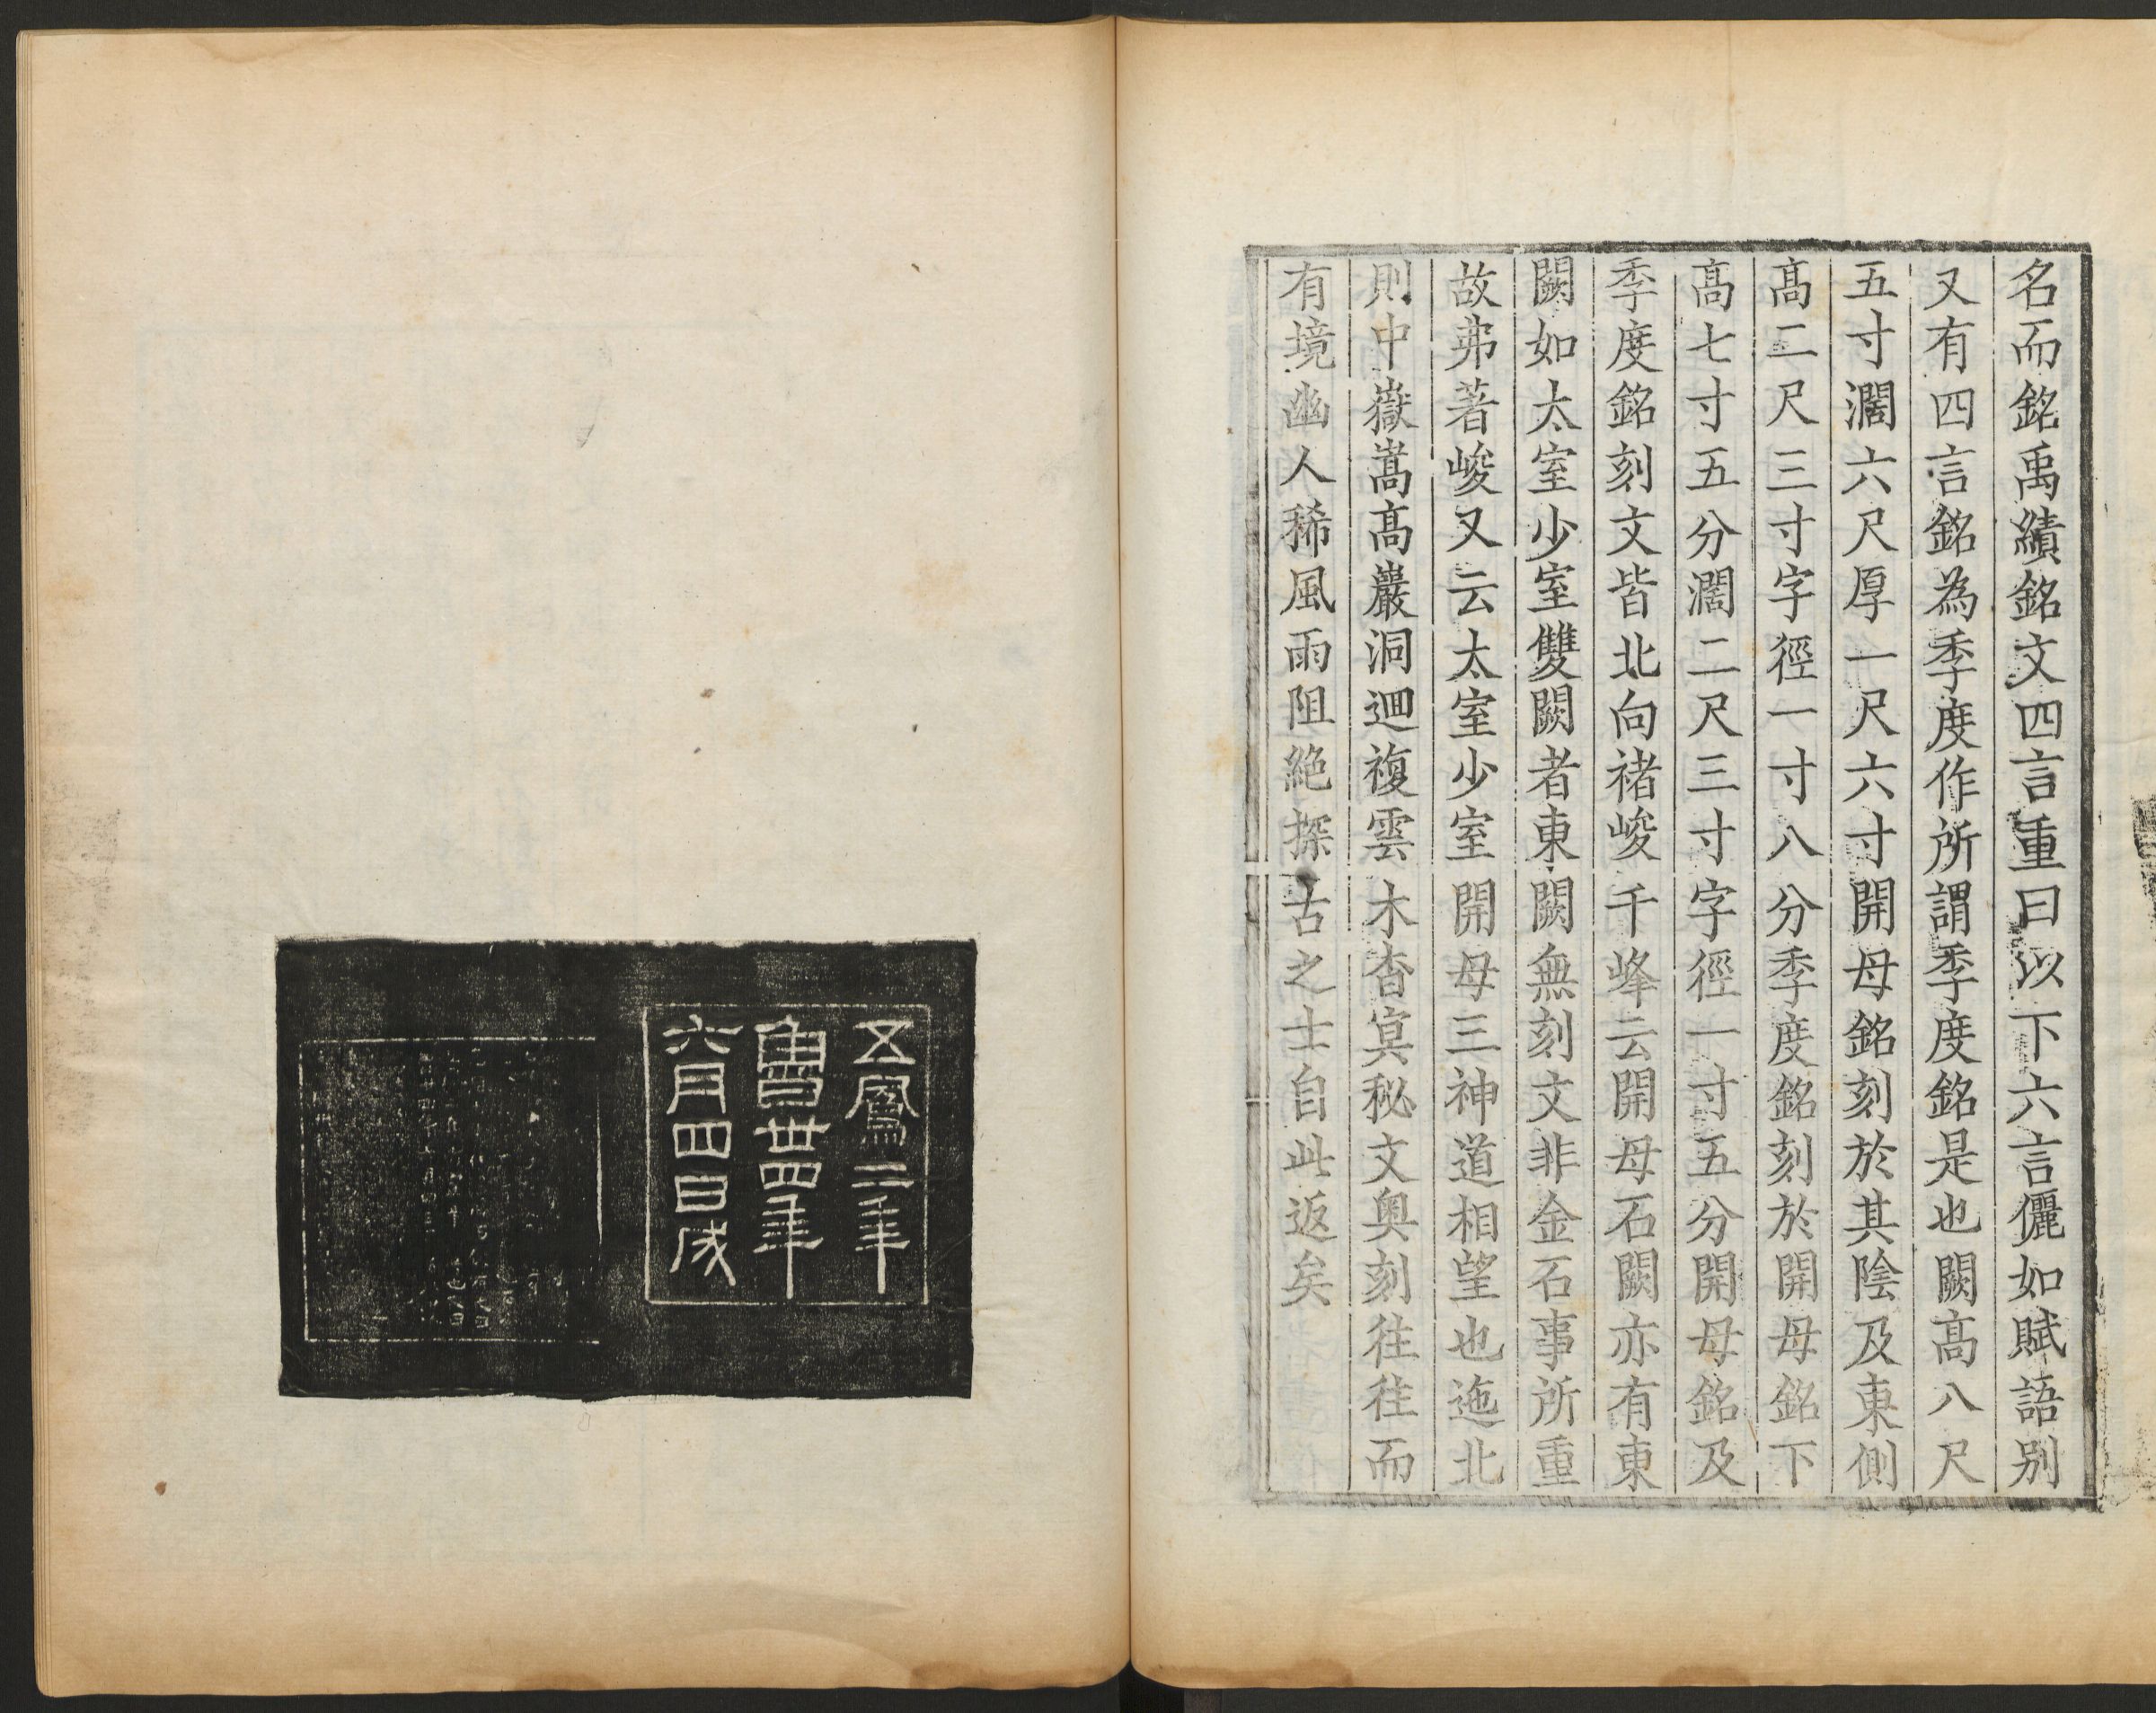 名而銘禹績銘文四言重曰以下六言儷如賦語别
又有四言銘為季度作所謂季度銘是也闕髙八尺
五寸濶六尺厚一尺六寸開母銘刻於其陰及東側
髙二尺三寸字徑一寸八分季度銘刻於開母銘下
髙七寸五分濶二尺三寸字徑一寸五分開母銘及
季度銘刻文皆北向褚峻千峰云開母石闕亦有東
闕如太室少室雙闕者東闕無刻文非金石事所重
故弗著峻又云太室少室開母三神道相望也迤北
則中嶽嵩髙巖洞迴複雲木杳冥秘文奥刻往往而
有境幽人稀風雨阻絶探古之士自此返矣
五鳳二年
魯丗四年
六月四日成